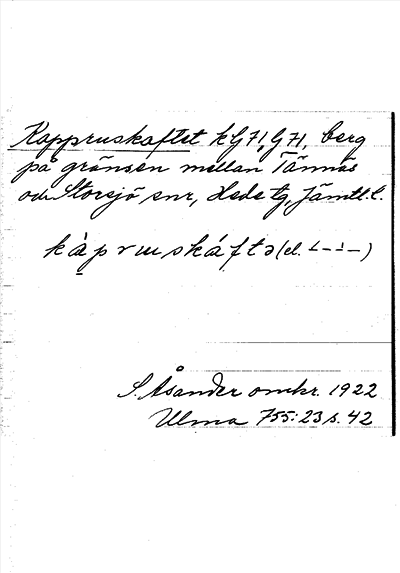 Kappruskaftet kG71, G71, berg
på gränsen mellan Tännäs
och Storsjö snr, Hede tg, Jämtl. l.
kàpruskáftə (el. ∸–∸–)
S. Åsander omkr. 1922
Ulma 755:23 s. 42